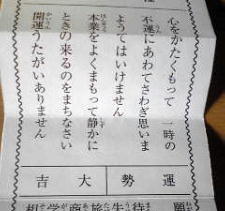 心をかたくもって 一時の
不運にあわてさわぎ思いま
ようてはいけません
本業をよくまもって静かに
ときの来るのをまちなさい
開運うたがいありません
運勢大吉
願
待
失
旅
商
学
相